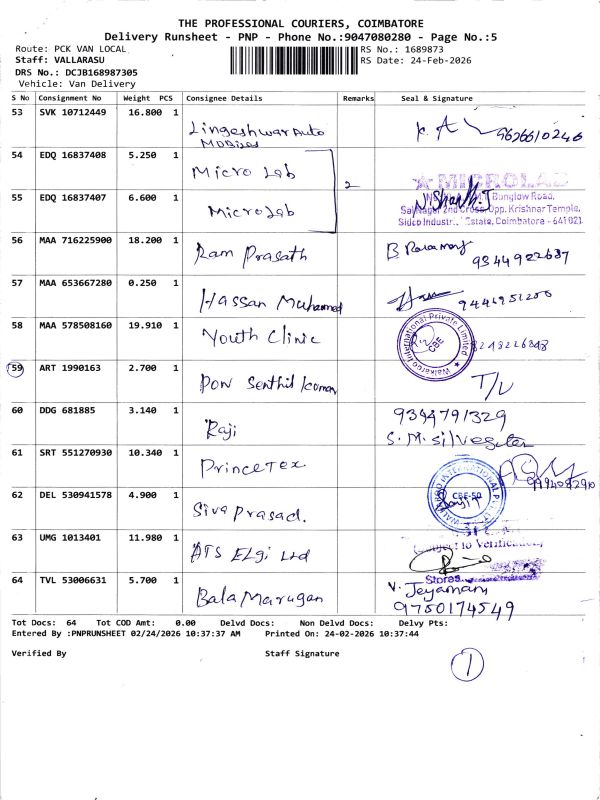 THE PROFESSIONAL COURIERS, COIMBATORE
Delivery Runsheet - PNP - Phone No.:9047080280 - Page No.:5
Route: PCK VAN LOCAL
Staff: VALLARASU
DRS No.: DCJB168987305
Vehicle: Van Delivery
RS No.: 1689873
RS Date: 24-Feb-2026
S No Consignment No Weight PCS Consignee Details Remarks Seal & Signature
53 SVK 10712449 16.800 1 Lingeshwar Auto Mobiles K. A 9626610246
54 EDQ 16837408 5.250 1 Micro Lab
2
55 EDQ 16837407 6.600 1 Micro Lab
★ MICROLAB
Bunglow Road,
Sai Nagar 2nd Cross, Opp. Krishnar Temple,
Sidco Industri Estate, Coimbatore - 641021.
56 MAA 716225900 18.200 1 Ram Prasath B 9344922637
57 MAA 653667280 0.250 1 Hassan Muhamed
58 MAA 578508160 19.910 1 Youth Clinic
International Private Limited
CBE
59 ART 1990163 2.700 1 Pon Senthil kumar T/L
60 DDG 681885 3.140 1 Raji 9344791329
S.M.
61 SRT 551270930 10.340 1 Princetex
62 DEL 530941578 4.900 1 Siva Prasad.
CBE-50
63 UMG 1013401 11.980 1 ATS ELgi Ltd
Subject to Verification
Stores
64 TVL 53006631 5.700 1 Bala Marugan V. Jeyamani
9750174549
Tot Docs: 64 Tot COD Amt: 0.00 Delvd Docs: Non Delvd Docs: Delvy Pts:
Entered By :PNPRUNSHEET 02/24/2026 10:37:37 AM Printed On: 24-02-2026 10:37:44
Verified By Staff Signature
1